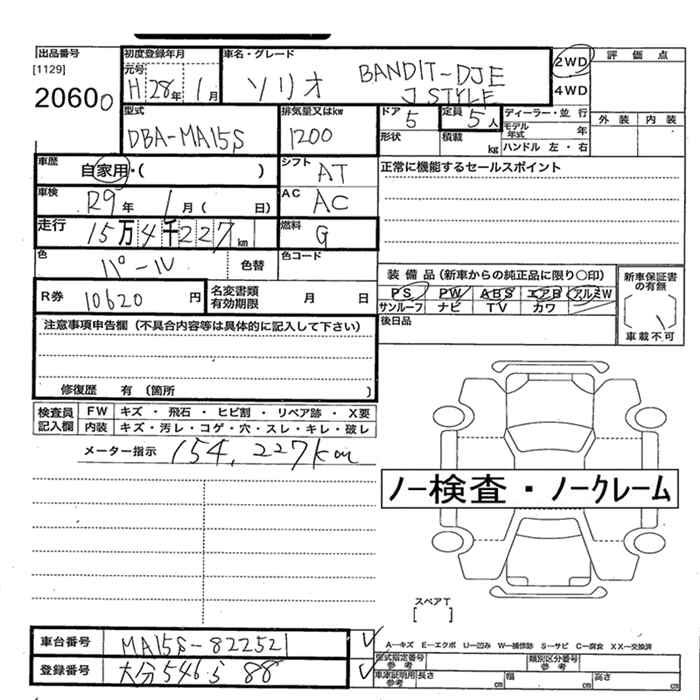 出品番号
[1129]
20600
初度登録年月
元号
H 28年 1月
車名・グレード
ソリオ BANDIT-DJE
J STYLE
2WD
4WD
評価点
外装 内装
型式
DBA-MA15S
排気量又はkw
1200
ドア
5
定員
5人
形状
積載
kg
ディーラー・並行
モデル年式 年
ハンドル 左・右
車歴
自家用・( )
シフト
AT
正常に機能するセールスポイント
車検
R9年 1月( 日)
AC
AC
走行
15万4千227km
燃料
G
色
パール
色替
色コード
装備品(新車からの純正品に限り○印)
PS PW ABS エアB アルミW
サンルーフ ナビ TV カワ
新車保証書の有無
車載不可
R券
10620円
名変書類有効期限
月 日
後日品
注意事項申告欄(不具合内容等は具体的に記入して下さい)
修復歴 有 (箇所 )
検査員記入欄
FW キズ・飛石・ヒビ割・リペア跡・X要
内装 キズ・汚レ・コゲ・穴・スレ・キレ・破レ
メーター指示 154,227km
ノー検査・ノークレーム
スペアT
[ ]
車台番号
MA15S-822521
登録番号
大分546ら88
A―キズ E―エクボ U―凹み W―補修跡 S―サビ C―腐食 XX―交換済
型式指定番号
参考
類別区分番号
参考
車庫証明用
参考
長さ cm
幅 cm
高さ cm